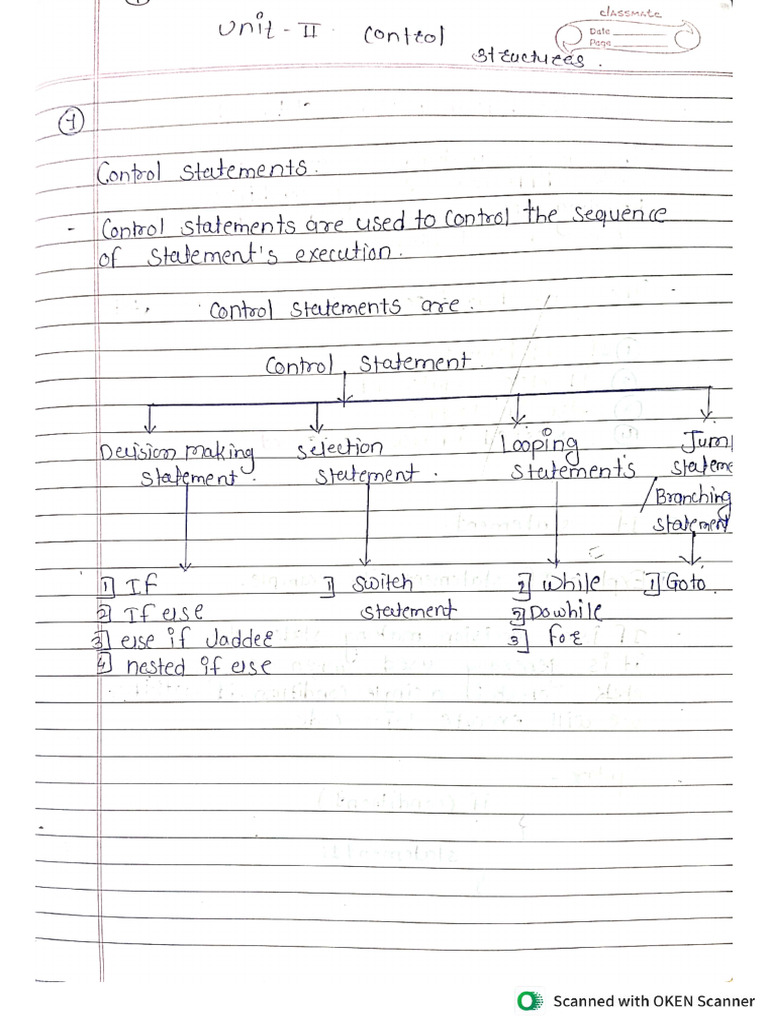 classmate
Date
Page
Unit - II Control
structures.
1
Control statements.
- Control statements are used to control the sequence
of statement's execution.
Control statements are.
Control statement.
Decision making statement.
Selection statement.
Looping statements
Jum stateme / Branching statement
1 If
2 If else
3 else if ladder
4 nested if else
1 Switch statement
2 While
2 Dowhile
3 for
1 Goto.
Scanned with OKEN Scanner